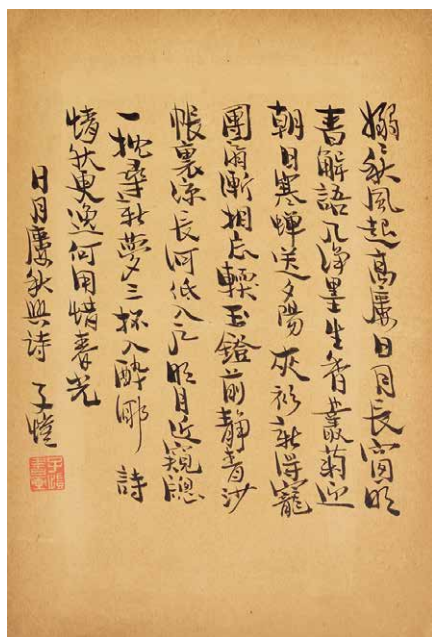 嫋々秋風起高廔日月長窗明
書解語几淨墨生香叢菊迎
朝日寒蟬送夕陽灰衫新得寵
團扇漸相忘輭玉鐙前靜青沙
帳裏涼長河低入戶明月近窺窗
一枕尋新夢三杯入醉鄉 詩
情秋更逸何用惜春光
日月廔秋興詩 子愷